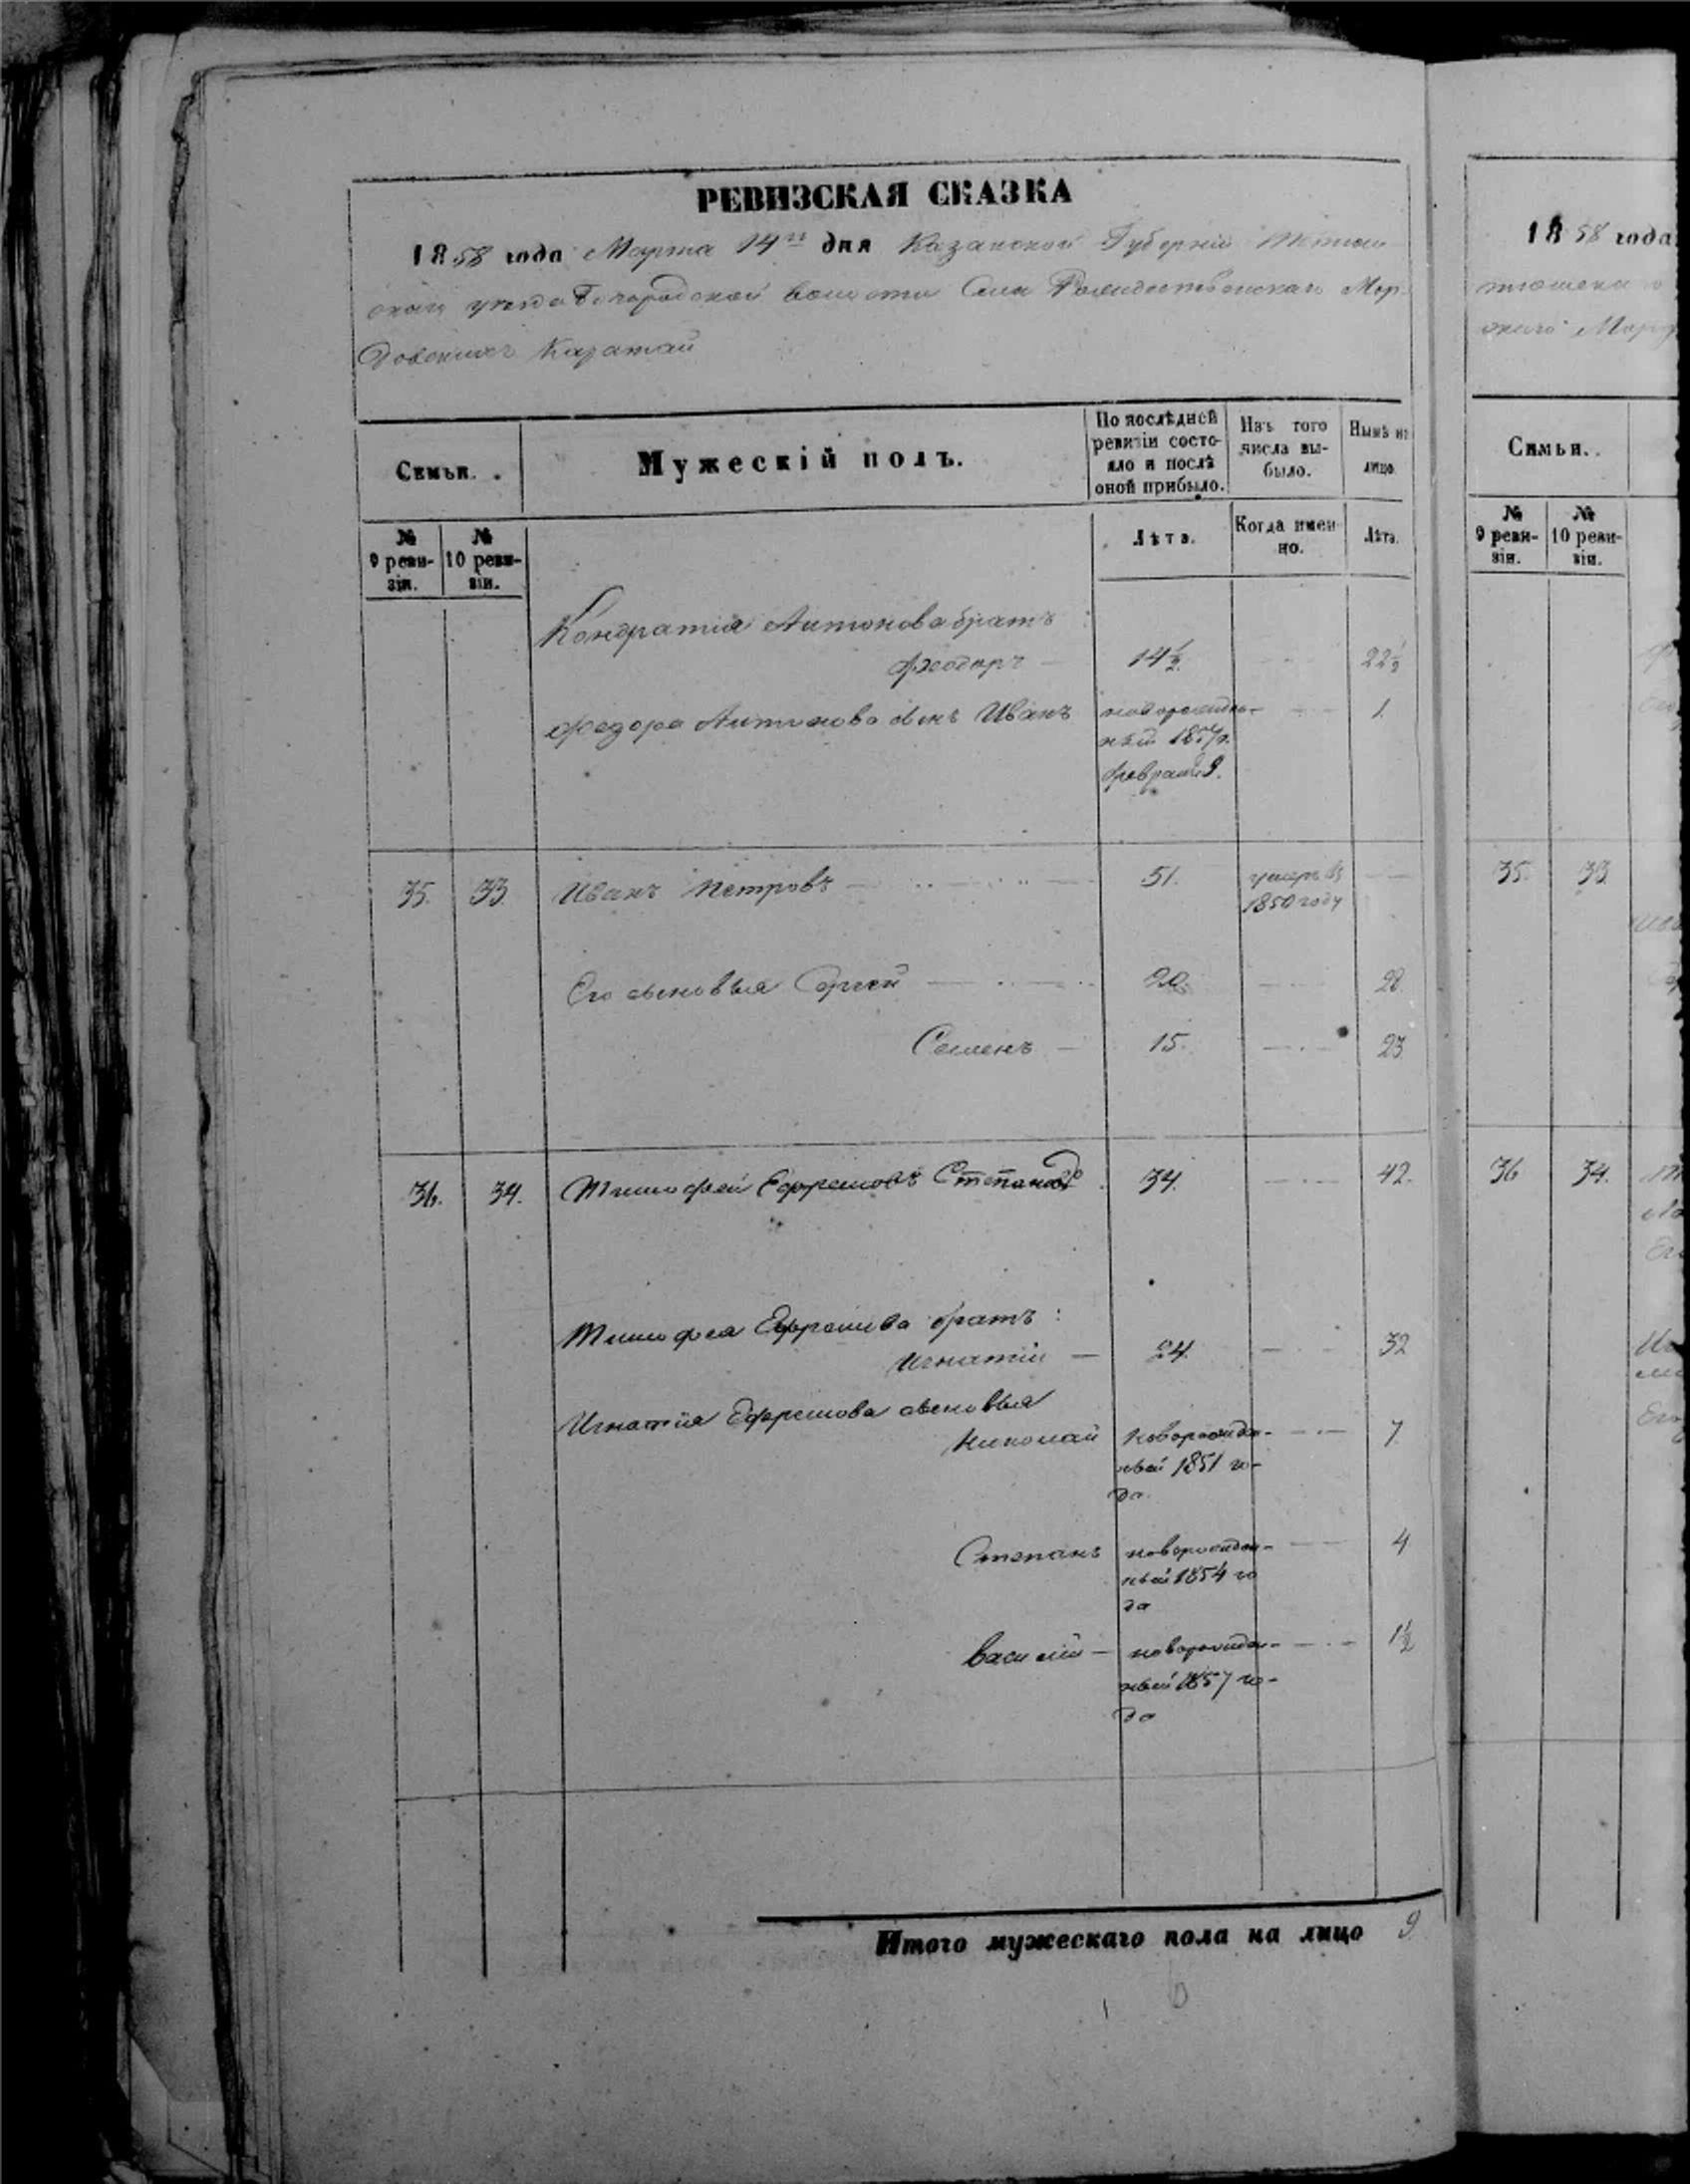 РЕВИЗСКАЯ СКАЗКА
1858 года Марта 14го дня Казанской Губерніи Тетюш-
скаго уѣзда Богородской волости Села Рождественскаго Мор-
довскихъ Каратай
Семьи.
Мужескій полъ.
По послѣдней ревизіи состо-
яло и послѣ оной прибыло.
Изъ того числа вы-
было.
Нынѣ на лицо
№ 9 реви-
зіи.
№ 10 реви-
зіи.
Лѣта.
Когда имен-
но.
Лѣта.
Кондратія Антонова братъ:
Ѳеодоръ — 14½. 22½
Федора Антонова сынъ Иванъ новорожден- 1.
ный 1857 г.
Февраля 9.
35. 33. Иванъ Петровъ 51. умеръ въ
1850 году
Его сыновья Сергей 20. 28.
Семенъ — 15. 23
36. 34. Тимофей Ефремовъ Степановъ 34. 42.
Тимофея Ефремова братъ:
Игнатій — 24. 32
Игнатія Ефремова сыновья
Николай новорожден- 7
ный 1851 го-
да.
Степанъ новорожден- 4
ный 1854 го
да
Василій — новорожден- 1½
ный 1857 го-
да
Итого мужескаго пола на лицо 9
1858 года
Семьи.
№ 9 реви-
зіи.
№ 10 реви-
зіи.
35. 33.
36 34.